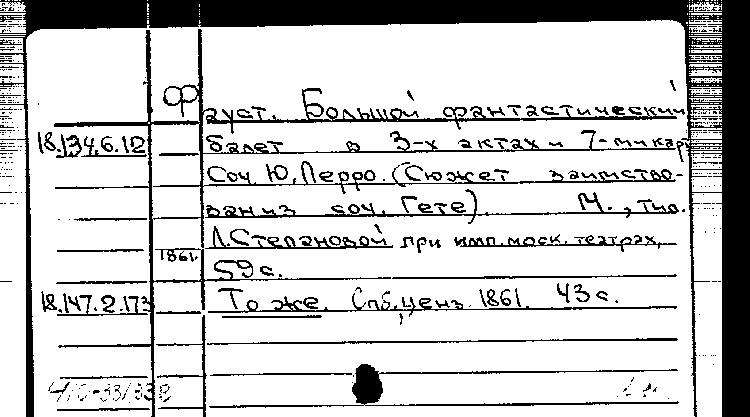 Фауст. Большой фантастический
18.134.6.12 балет в 3-х актах и 7-ми кар
Соч. Ю. Перро. (Сюжет заимство-
ван из соч. Гете). М., тип.
Л. Степановой при имп. моск. театрах,
1861. 59 с.
18.147.2.173 То же. Спб., ценз. 1861. 43 с.